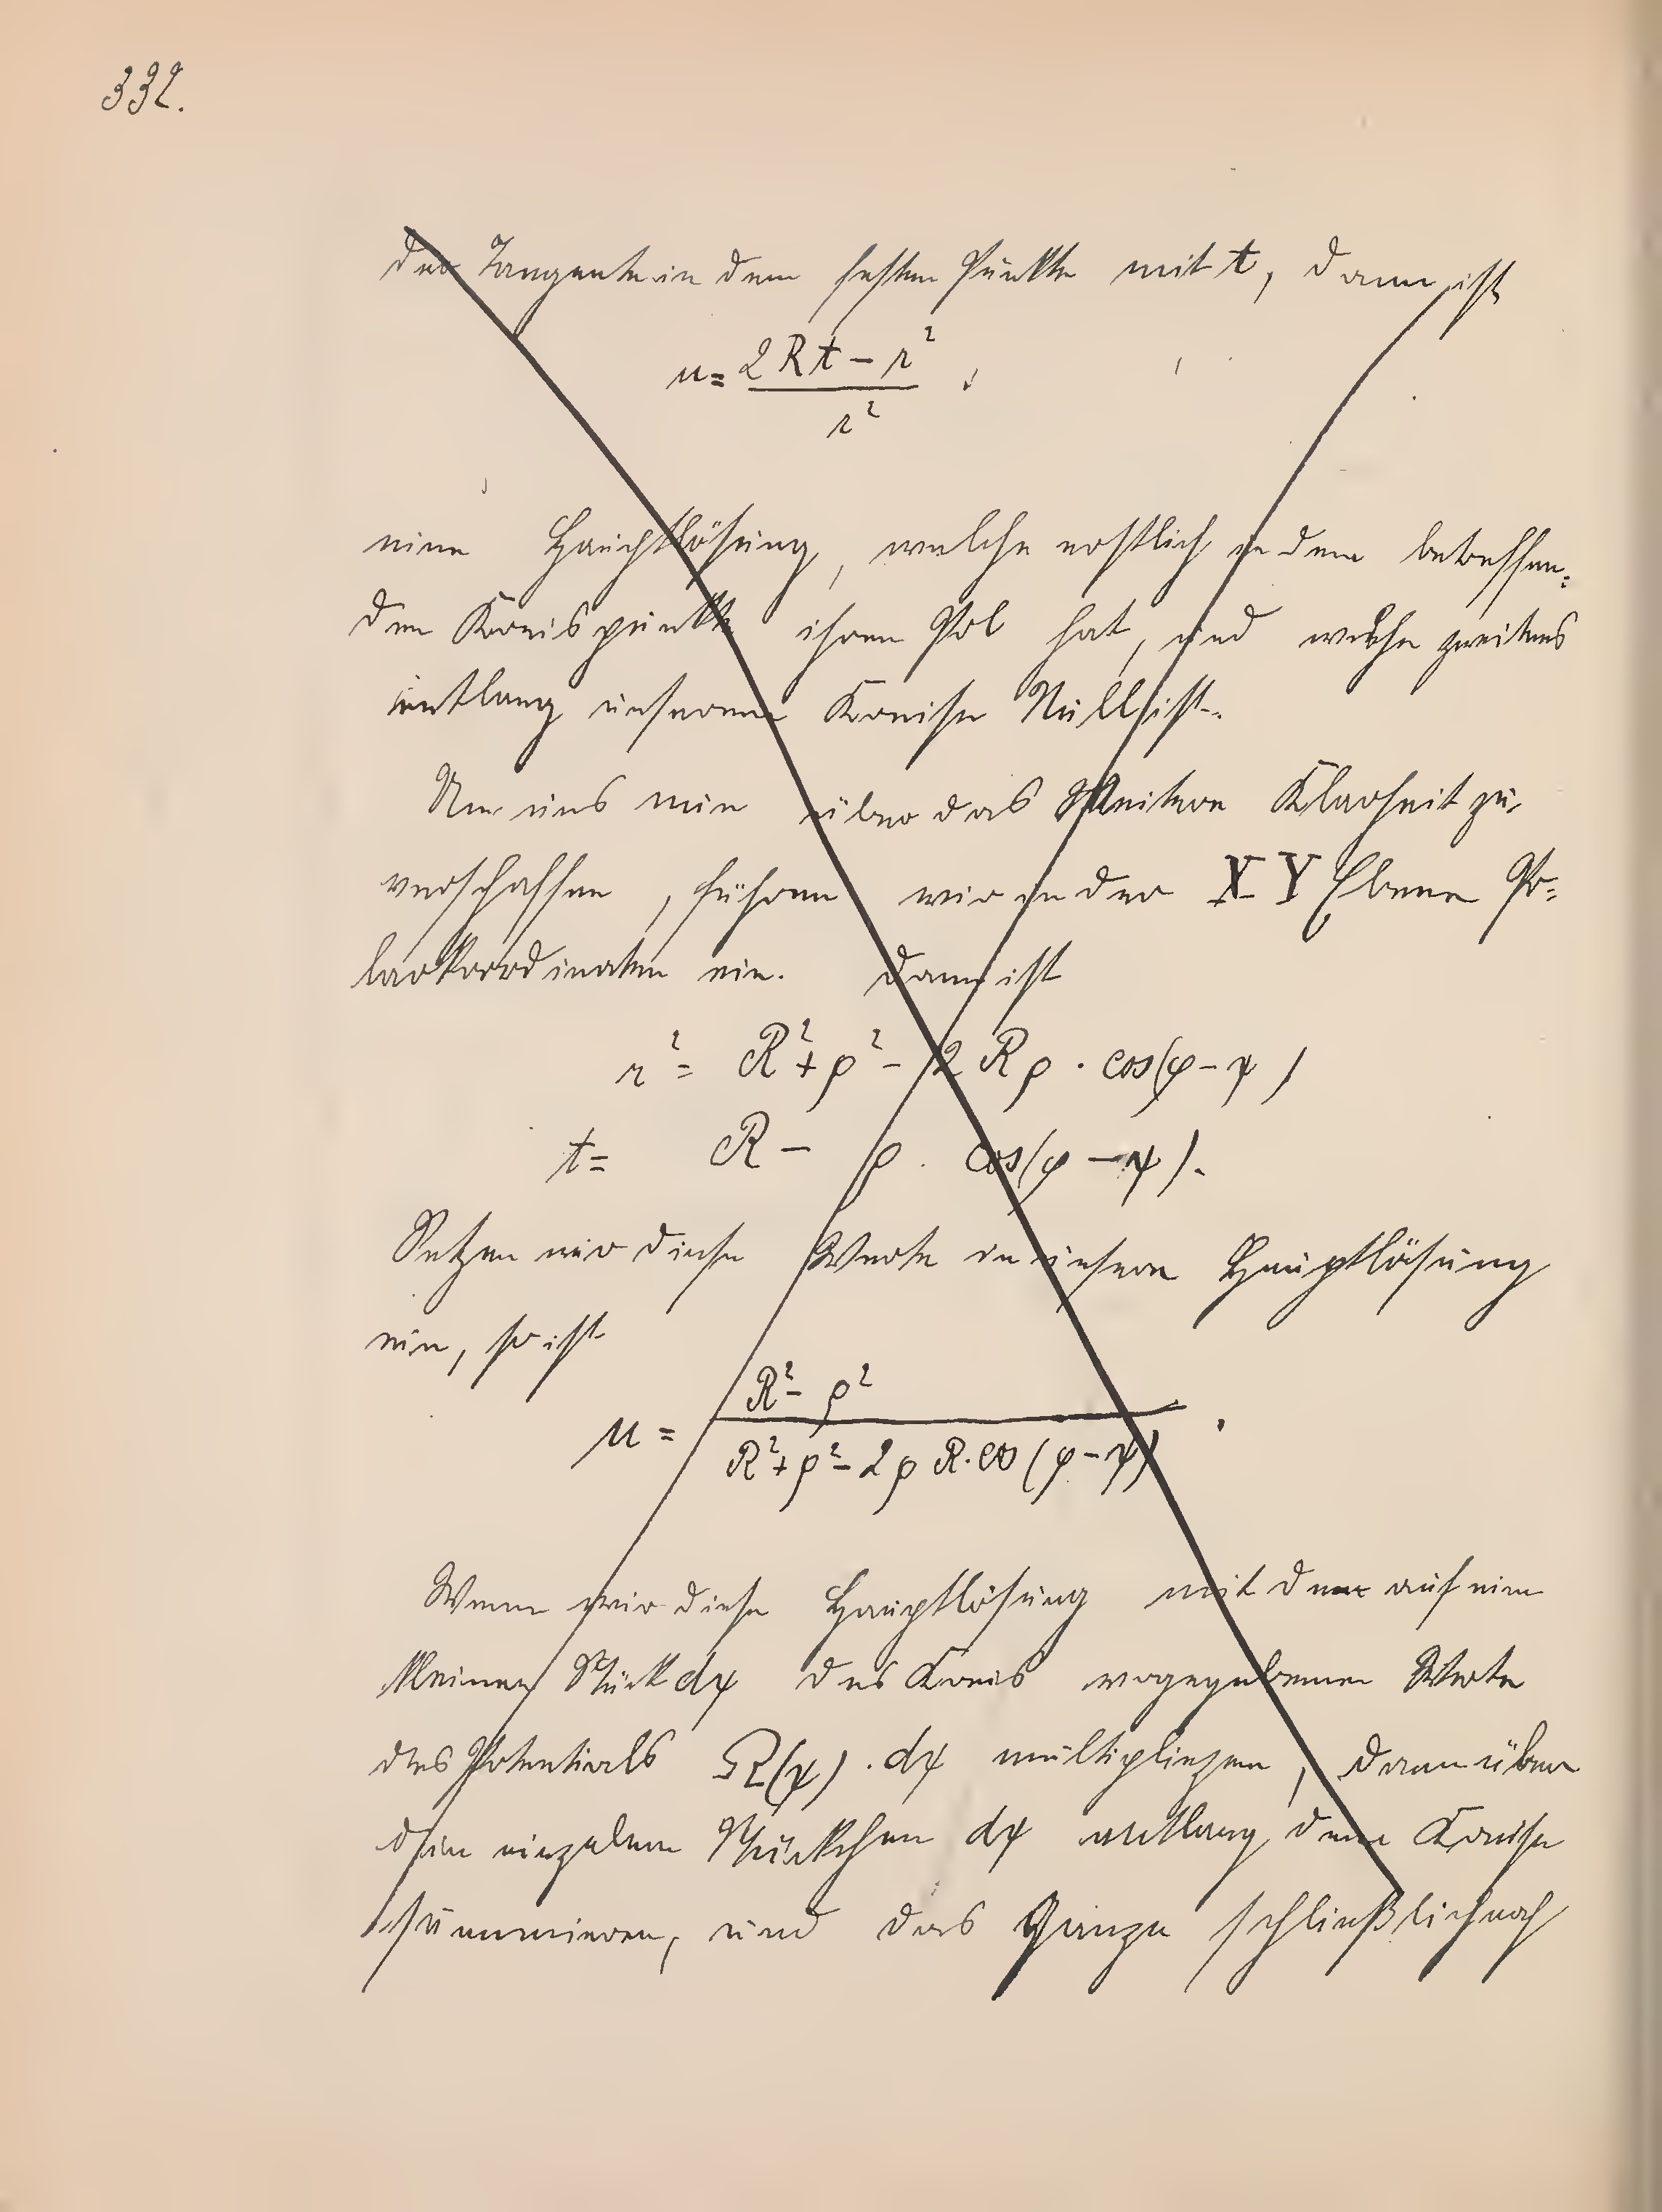 332.
der Tangente in dem festen Punkte mit t, dann ist
u = (2Rt − r²) / r² ,
eine Hauptlösung, welche erstlich in dem betreffen=
den Kreispunkte ihren Pol hat, und welche zweitens
entlang unserem Kreise Null ist.
Um uns nun über das Weitere Klarheit zu
verschaffen, führen wir in der XY Ebene Po=
larkoordinaten ein. Dann ist
r² = R² + ρ² − 2Rρ · cos(φ − ψ)
t = R − ρ . cos(φ − ψ).
Setzen wir diese Werte in unsere Hauptlösung
ein, so ist
u = (R² − ρ²) / (R² + ρ² − 2ρR·cos(φ − ψ)) .
Wenn wir diese Hauptlösung mit dem auf ein
kleines Stück dψ des Kreis vorgegebenen Werte
des Potentials Ω(ψ) . dψ multipliezen, dann über
die einzelnen Stückchen dψ entlang dem Kreise
summieren, und das Ganze schließlich noch